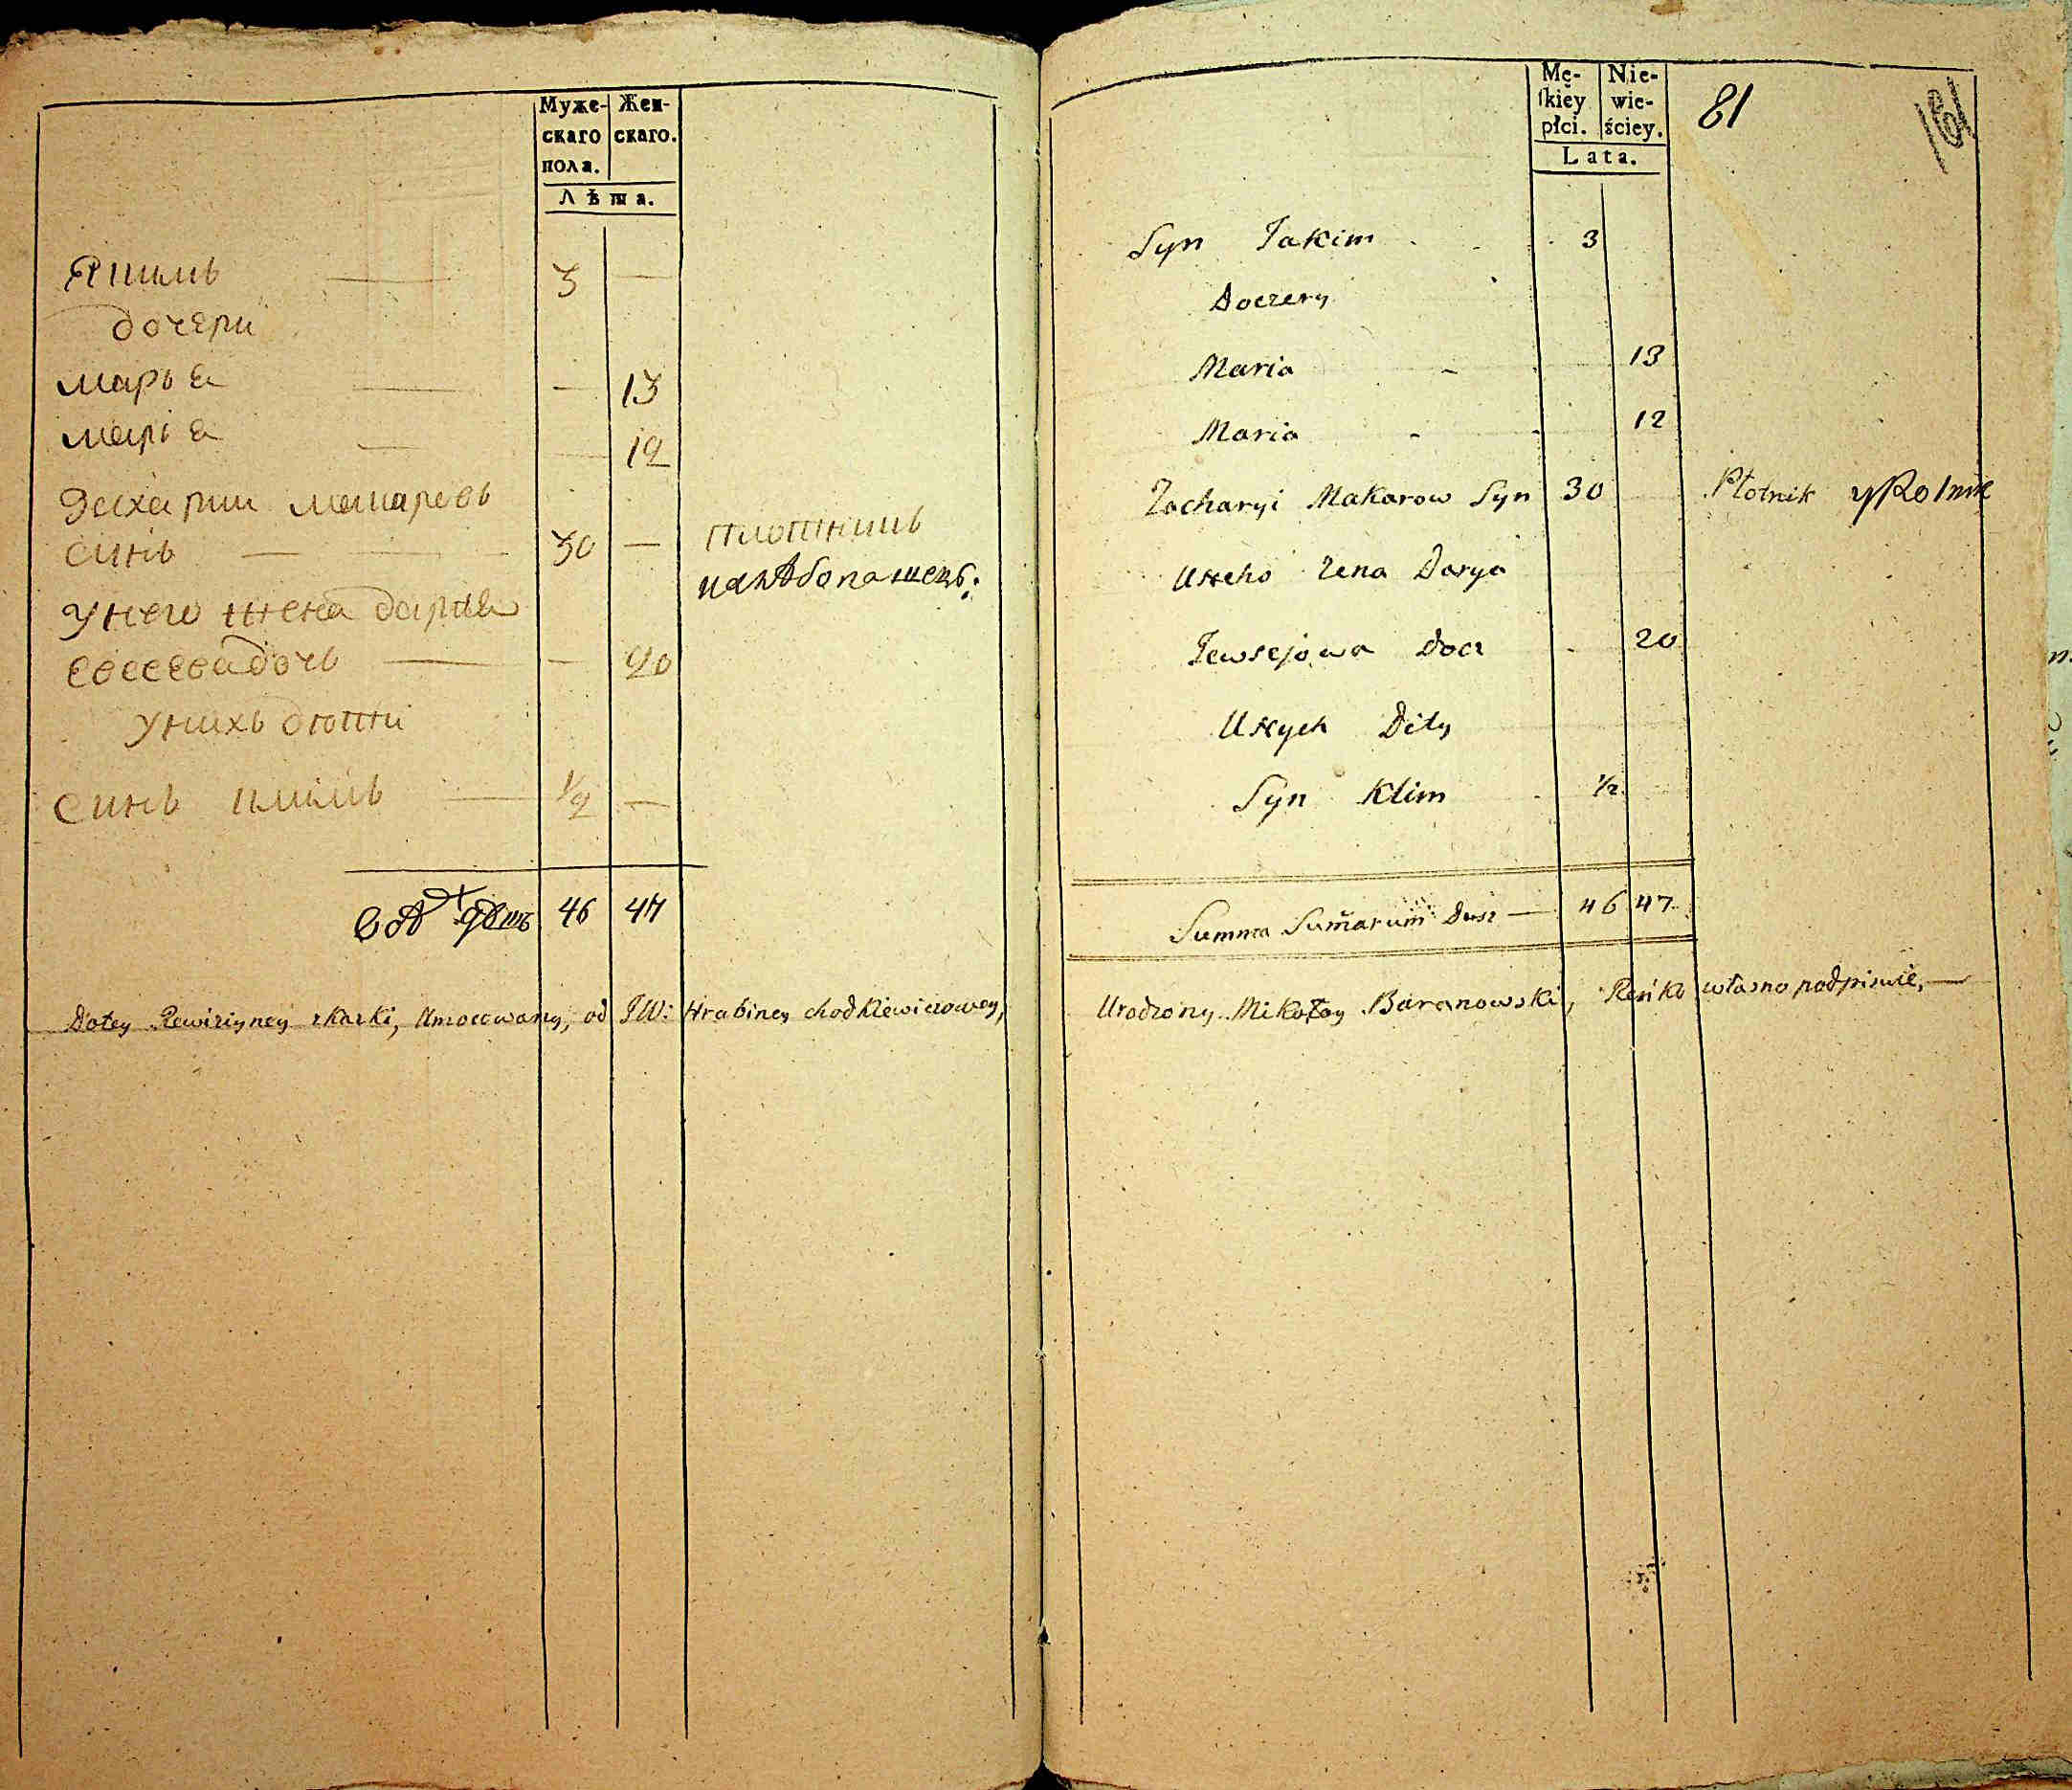 Муже-
скаго
пола.
Жен-
скаго.
Лѣта.
Якимъ 3 —
дочери
марья — 13
марья — 12
Захарии макаровъ
синъ 30 — плотникъ
и хлѣбопашецъ:
Унего жена дария
евсеева дочь — 20
Унихъ дѣти
Синъ климъ ½ —
46 47
Do tey Rewizyiney skazki, Umocowany, od JW: Hrabiney Chodkiewiczowey,
Mę-
skiey
płci.
Nie-
wie-
ściey.
Lata.
81
Syn Jakim 3
Doczery
Maria 13
Maria 12
Zacharyi Makarow Syn 30 Płotnik y Rolnik
Uneho żena Darya
Jewsejowa Docz 20
Unych Dity
Syn Klim ½
Summa Sum̃arum Dusz — 46 47
Urodzony Mikołay Baranowski, Ręńko własno podpisuie, —